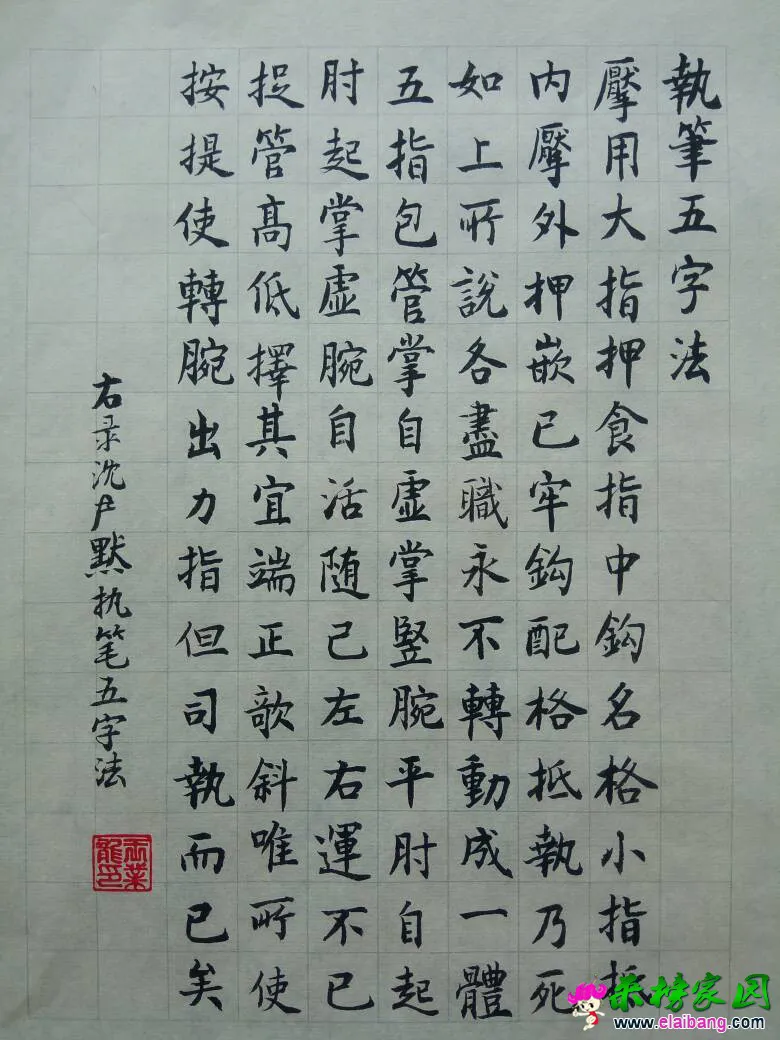 執筆五字法
擪用大指押食指中鈎名格小指抵
内擪外押嵌已牢鈎配格抵執乃死
如上所說各盡職永不轉動成一體
五指包管掌自虛掌竪腕平肘自起
肘起掌虛腕自活随己左右運不已
捉管髙低擇其宜端正欹斜唯所使
按提使轉腕出力指但司執而已矣
右录沈尹默执笔五字法
龍印
来榜家园
www.elaibang.com